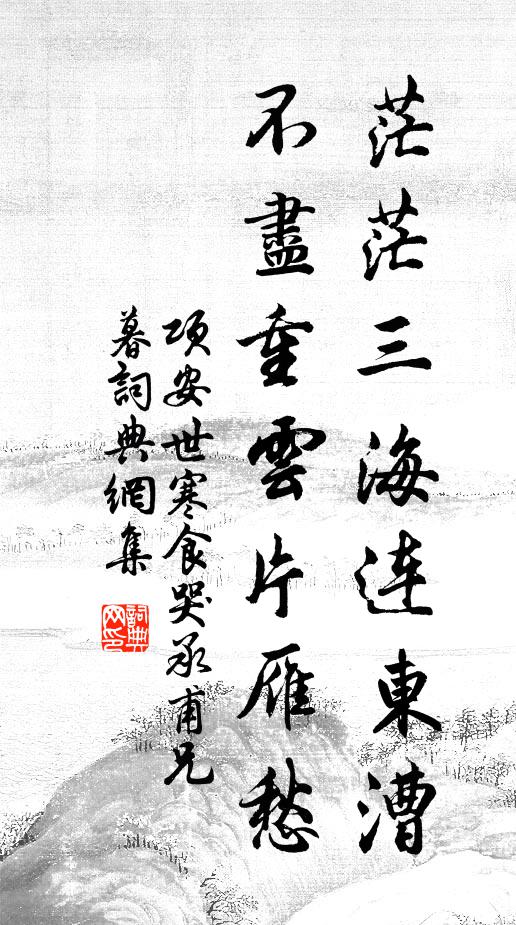 茫茫三海連東漕
不盡重雲片雁愁
項安世寒食哭承甫兄
暮詞典網集
詞典
网印